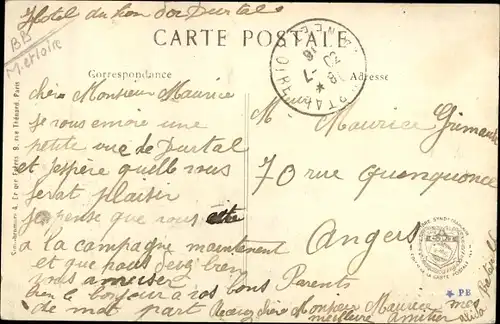 Hotel du Lion d'or Durtal
BB
M. et Loire
CARTE POSTALE
Correspondance
Adresse
18-7
chère Monsieur Maurice
je vous envoie une
petite vue de Durtal
et j'espère quelle vous
ferat plaisir
je pense que vous ète
a la campagne maintenent
et que vous devez bien
vous amuser
bien le bonjour a vos bons Parents
de mot part Recevez chère Monsieur Maurice mes
meilleure amitier
M Maurice
70 rue Quenquonce
Angers
* PB